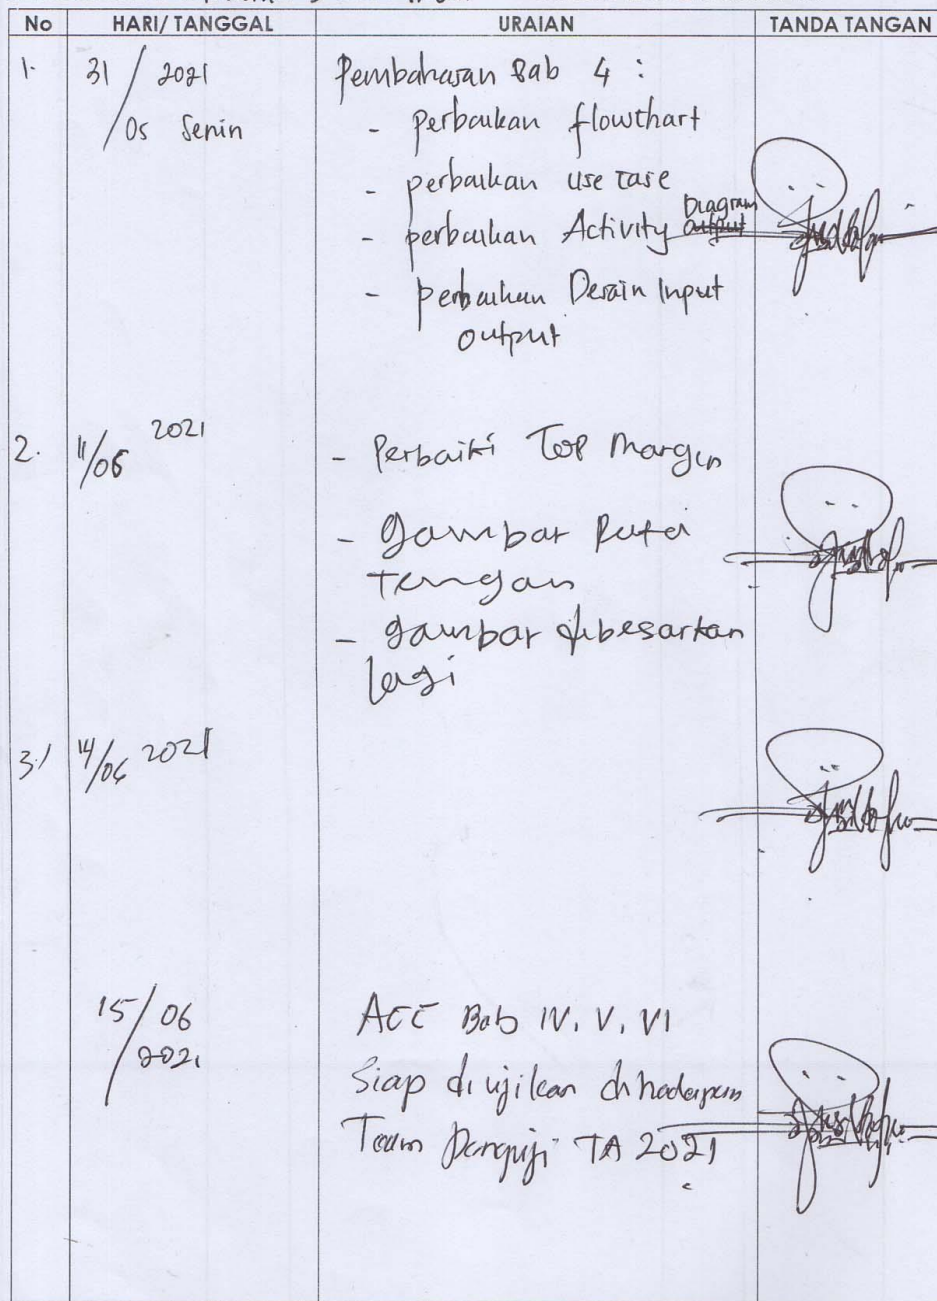 No HARI/ TANGGAL URAIAN TANDA TANGAN
1. 31 / 05 2021 Senin
Pembahasan Bab 4 :
- perbaikan flowchart
- perbaikan use case
- perbaikan Activity Diagram
- perbaikan Desain Input
output
2. 11/06 2021
- Perbaiki Top Margin
- gambar Rata
tengah
- gambar dibesarkan
lagi
3. 14/06 2021
15/06
2021
ACC Bab IV, V, VI
Siap diujikan dihadapan
Team Penguji TA 2021